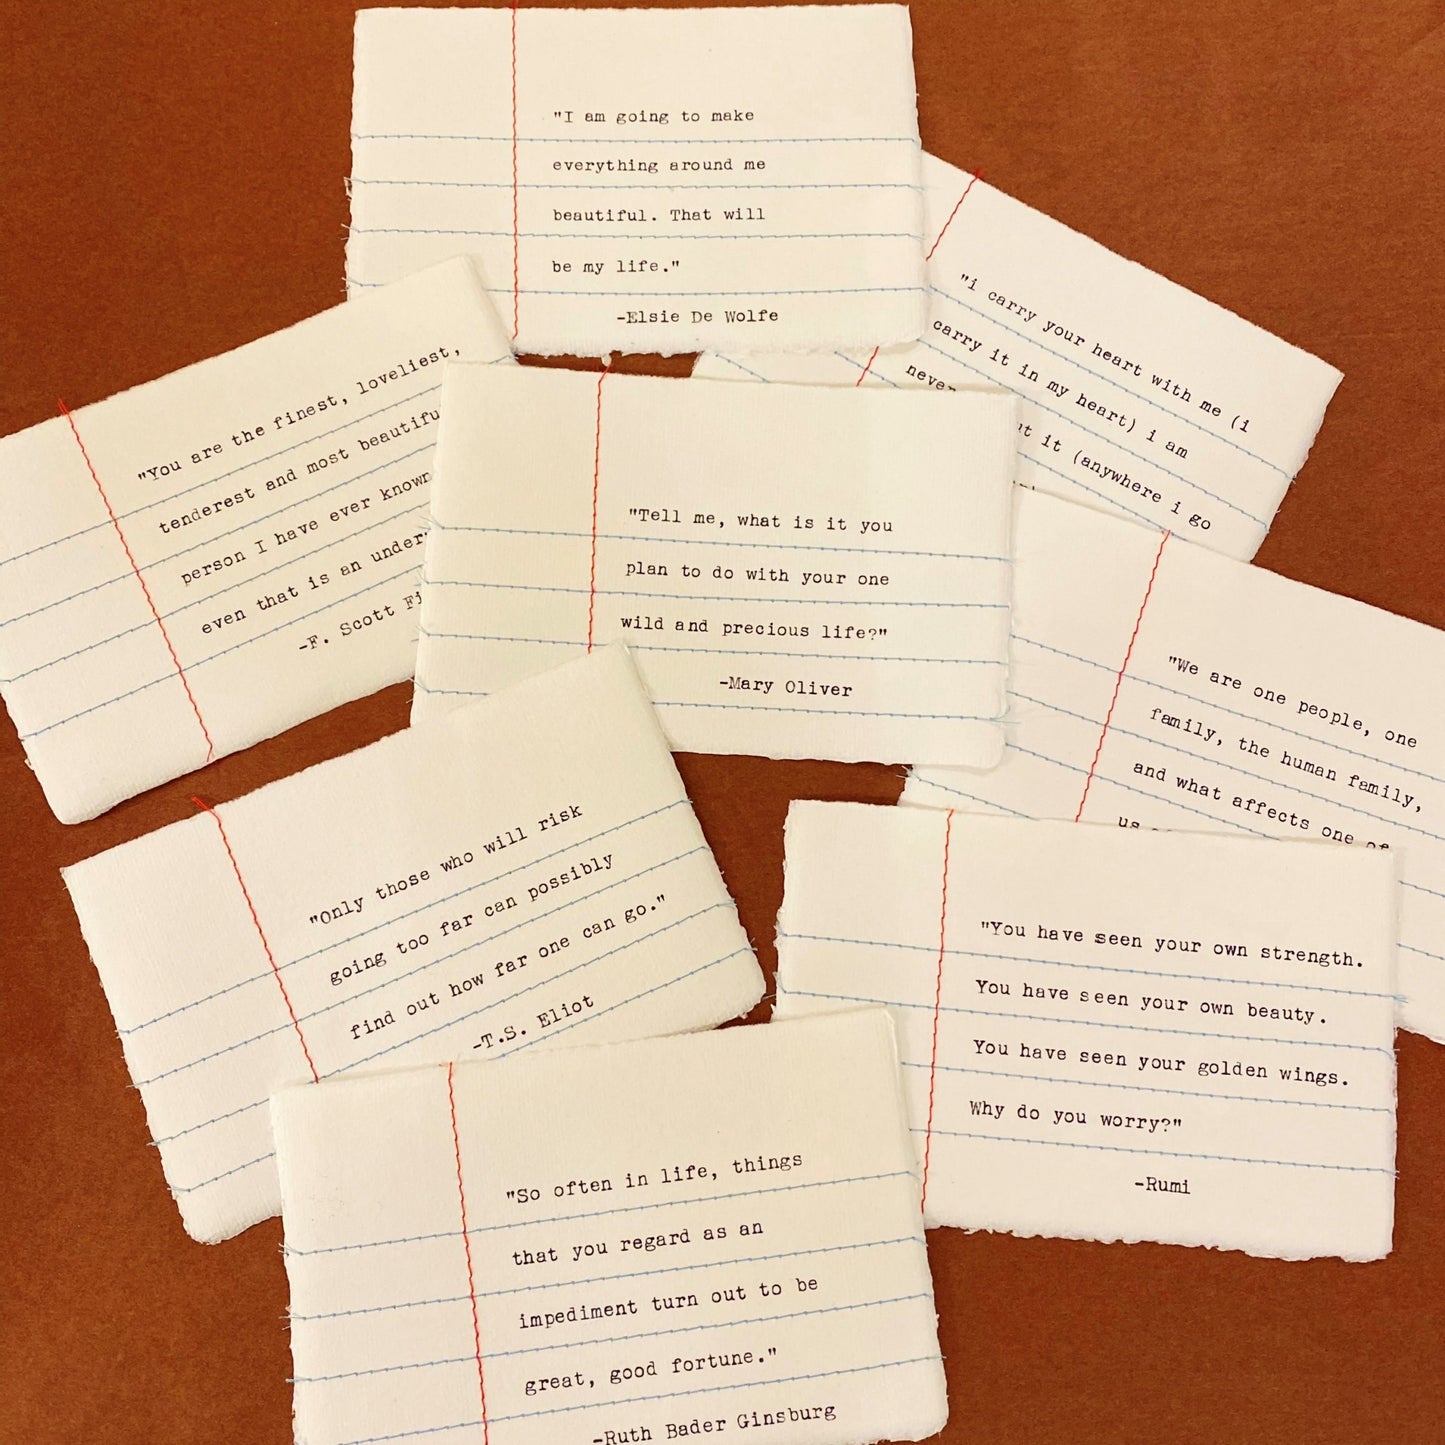 "I am going to make
everything around me
beautiful. That will
be my life."
-Elsie De Wolfe
"i carry your heart with me (i
carry it in my heart) i am
never
it (anywhere i go
"You are the finest, loveliest,
tenderest and most beautiful
person I have ever known
even that is an under
-F. Scott
"Tell me, what is it you
plan to do with your one
wild and precious life?"
-Mary Oliver
"We are one people, one
family, the human family,
and what affects one of
us
"Only those who will risk
going too far can possibly
find out how far one can go."
-T.S. Eliot
"You have seen your own strength.
You have seen your own beauty.
You have seen your golden wings.
Why do you worry?"
-Rumi
"So often in life, things
that you regard as an
impediment turn out to be
great, good fortune."
-Ruth Bader Ginsburg